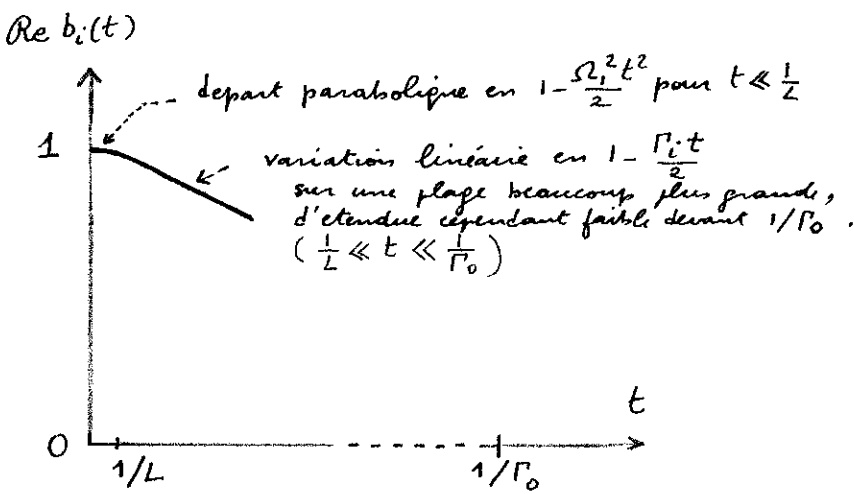 Re bᵢ(t)
depart parabolique en 1 - Ω₁²t²/2 pour t ≪ 1/L
1
variation linéaire en 1 - Γᵢt/2
sur une plage beaucoup plus grande,
d'etendue cependant faible devant 1/Γ₀.
(1/L ≪ t ≪ 1/Γ₀)
t
0
1/L
1/Γ₀